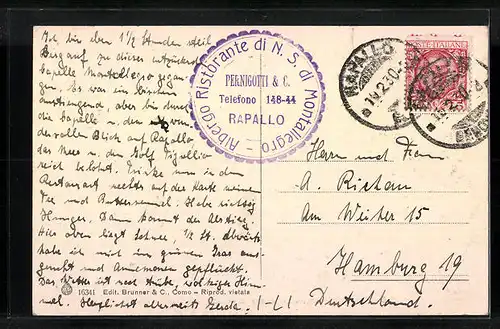 Ich bin über 1 1/2 Stunden steil
Bergauf zu dieser entzückenden
Capelle Montallegro gegan-
gen. Es war ein bischen
anstrengend, aber bin durch
die Capelle u. den wun-
dervollen Blick auf Rapallo
das Meer u. den Golf Tigullio
reich belohnt. Trinke nun in dem
Restaurant rechts auf der Karte meinen
Tee und Buttersemmel. Habe richtig
Hunger. Dann kommt der Abstieg.
Hier oben liegt Schnee, 1/2 St. abwärts
habe ich mich im grünen Gras aus-
geruht und Anemonen gepflückt.
Das Wetter ist noch trübe, wolkiger Him-
mel. Herzlichst allerseits Gerda.
16341 Edit. Brunner & C., Como - Riprod. vietata
Albergo Ristorante di N. S. di Montallegro
PERNIGOTTI & C.
Telefono 148-44
RAPALLO
RAPALLO
POSTE ITALIANE
Herrn und Frau
A.
Am Weiher 15
Hamburg 19
Deutschland.